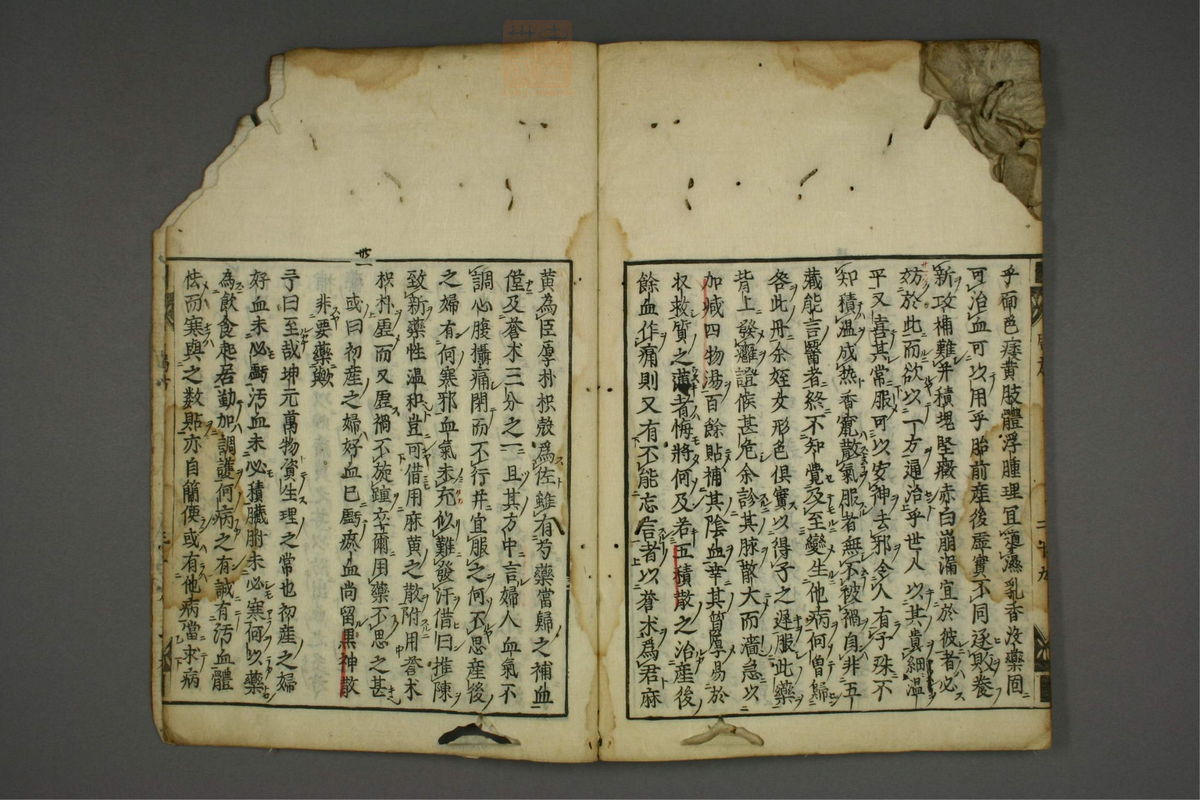 乎而色痿黄肢體浮腫理宜導濕乳香没藥固
可治血可以用乎胎前産後虚實不同逐敗養
新攻補難并積塊堅癥赤白崩漏宜於彼者必
妨於此而欲以一方通治乎世人以其貴細温
平又喜其常服可以安神去邪令人有子殊不
知積温成热香竄散氣服者無不被禍自非五
藏能言醫者終不知覺及至變生他病何曽歸
咎此丹余姪女形色俱實以得子之遅服此藥
背上發癰證候甚危余診其脉散大而濇急以
加減四物湯百餘貼補其陰血幸其質厚易於
収救質之薄者悔將何及若五積散之治産後
餘血作痛則又有不能忘言者以蒼术為君麻
黄為臣厚朴枳殻為佐雖有芍藥當歸之補血
僅及蒼术三分之一且其方中言婦人血氣不
調心腹攝痛閉而不行并宜服之何不思産後
之婦有何寒邪血氣未充似難發汗借曰推陳
致新藥性温和豈可借用麻黄之散附用蒼术
枳朴虚而又虚禍不旋踵卒爾用藥不思之甚
或曰初産之婦好血已虧瘀血尚留黒神散
非要藥歟
予曰至哉坤元萬物資生理之常也初産之婦
好血未必虧汚血未必積臓腑未必寒何以藥
為飲食起居勤加調護何病之有誠有汚血體
怯而寒與之数貼亦自簡便或有他病當求病